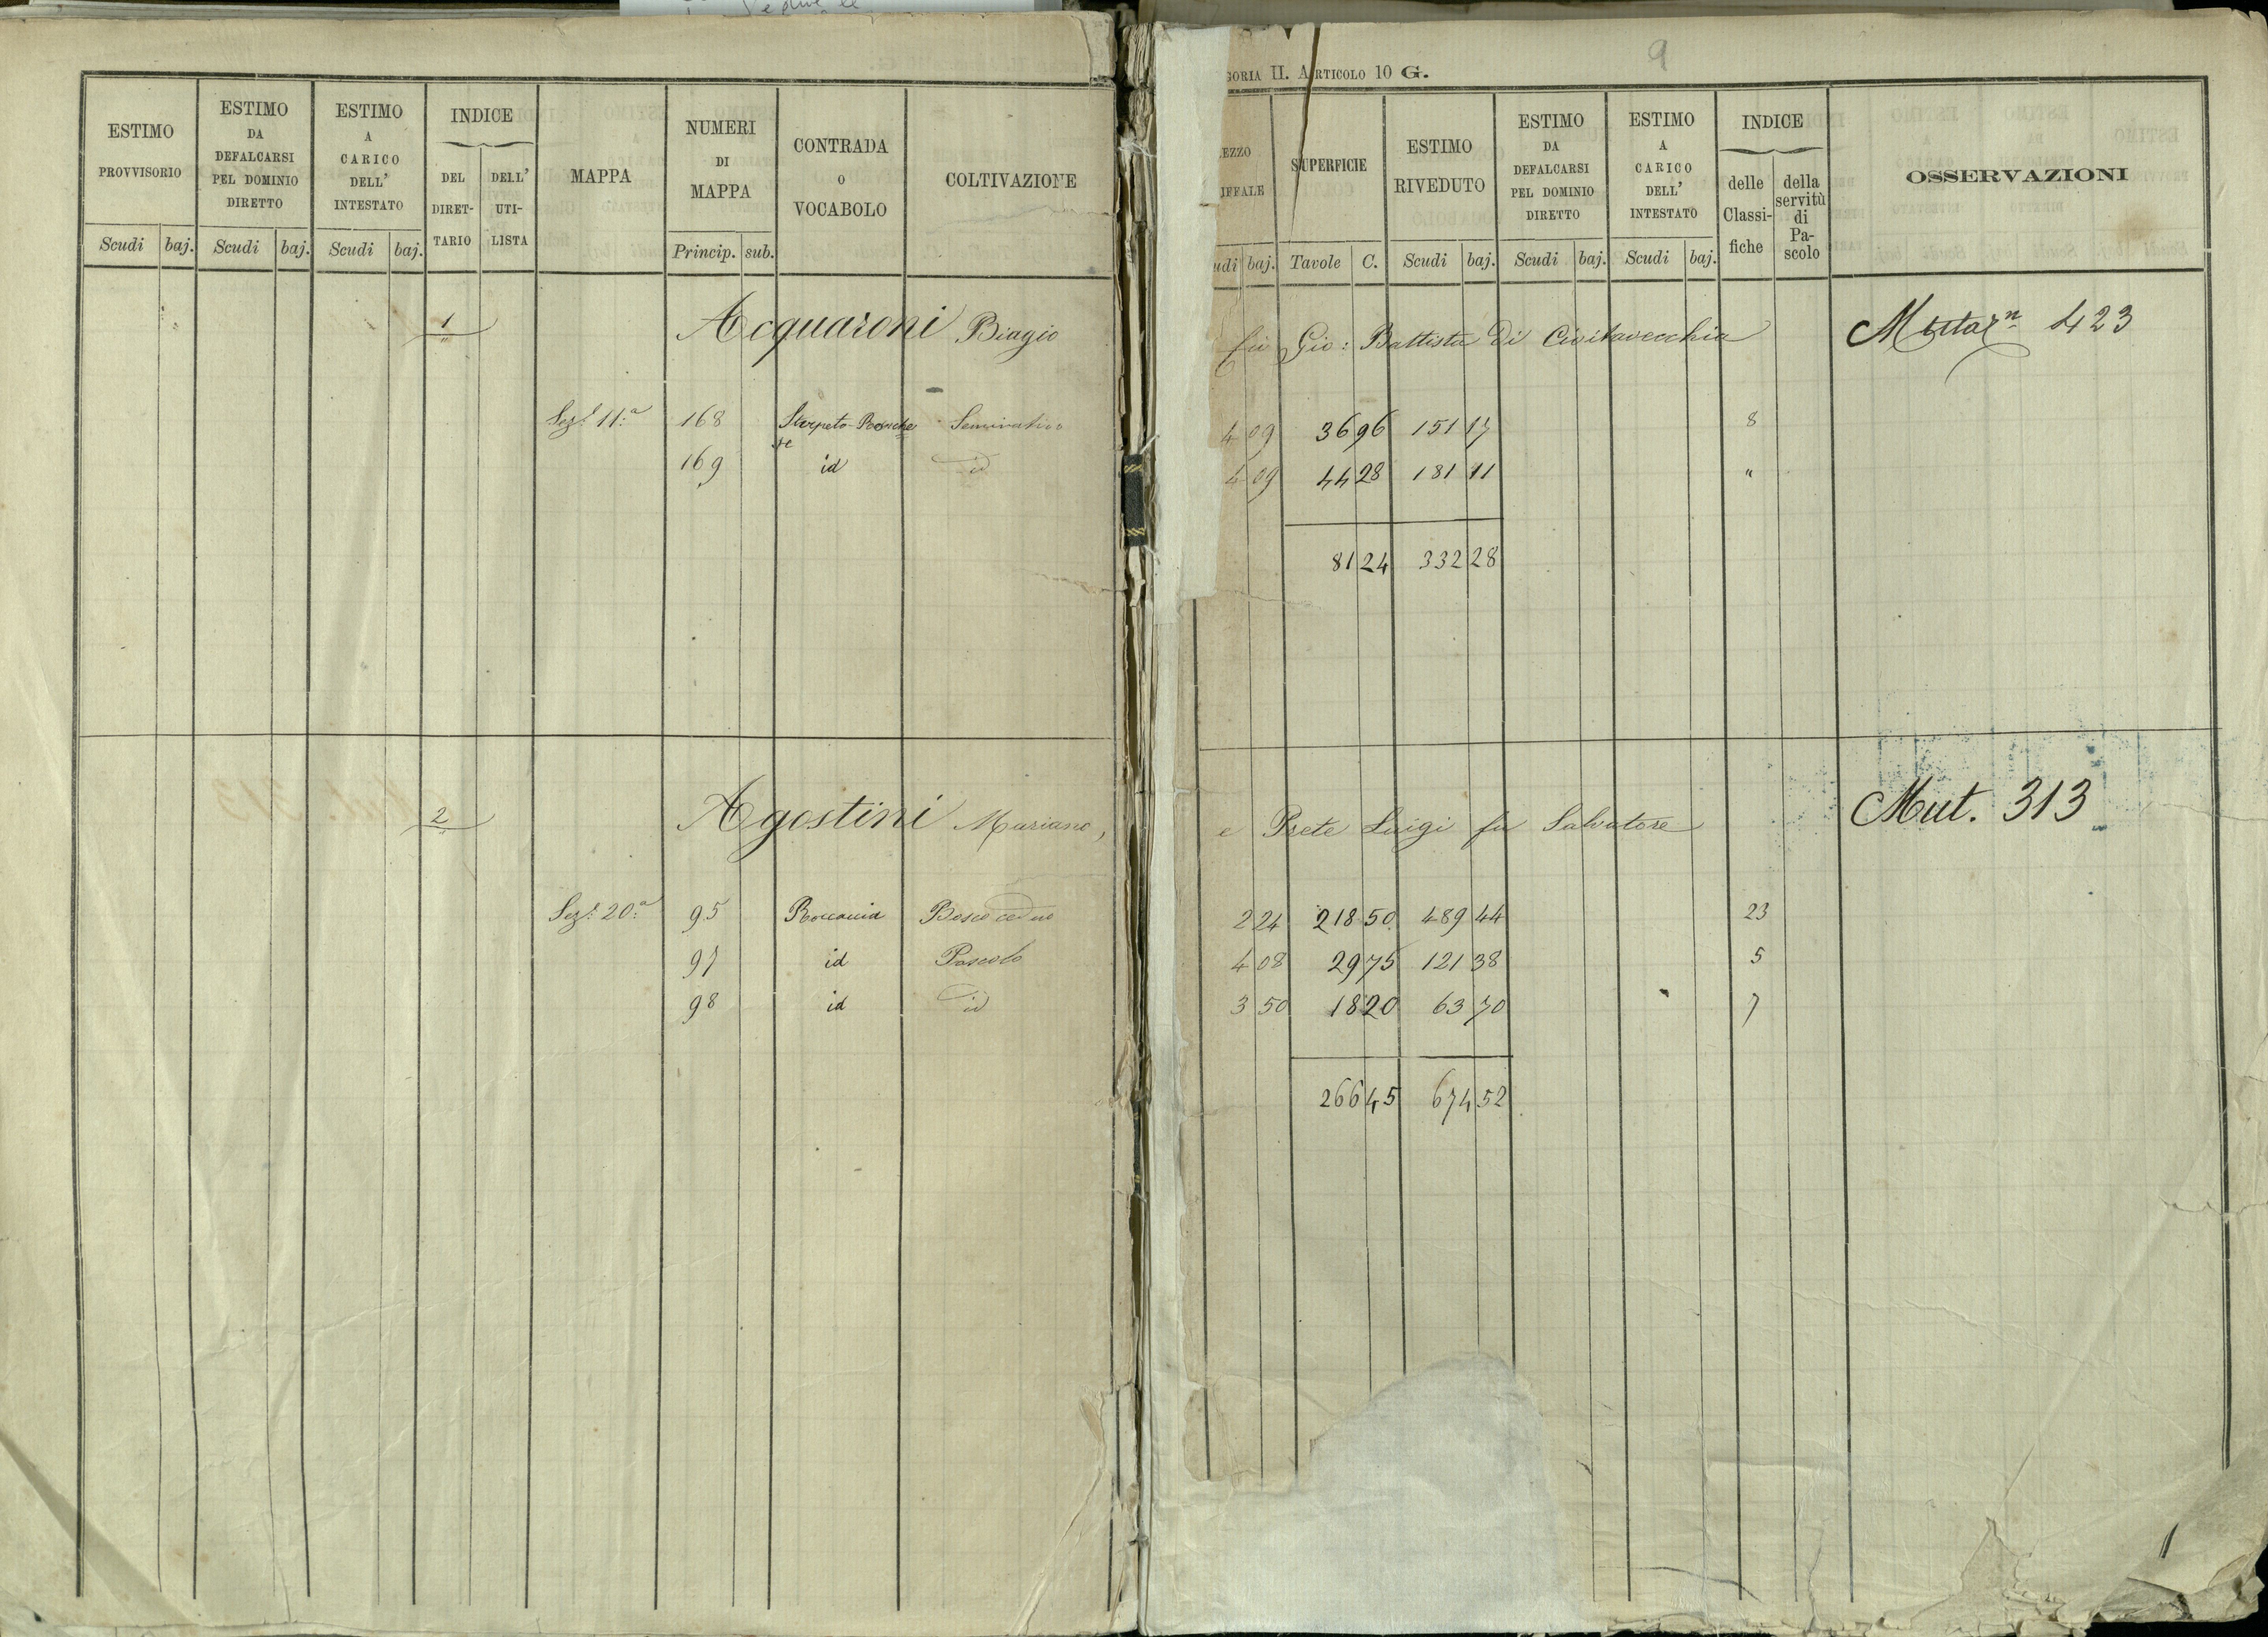 9
GORIA II. ARTICOLO 10 G.
ESTIMO PROVVISORIO Scudi baj.
ESTIMO DA DEFALCARSI PEL DOMINIO DIRETTO Scudi baj.
ESTIMO A CARICO DELL' INTESTATO Scudi baj.
INDICE DEL DIRET-TARIO DELL' UTI-LISTA
MAPPA
NUMERI DI MAPPA Princip. sub.
CONTRADA O VOCABOLO
COLTIVAZIONE
EZZO IFFALE udi baj.
SUPERFICIE Tavole C.
ESTIMO RIVEDUTO Scudi baj.
ESTIMO DA DEFALCARSI PEL DOMINIO DIRETTO Scudi baj.
ESTIMO A CARICO DELL' INTESTATO Scudi baj.
INDICE delle Classi-fiche della servitù di Pa-scolo
OSSERVAZIONI
1 Acquaroni Biagio fu Gio: Battista di Civitavecchia 423
Sez.e 11.a 168 Seminativo 4 09 36 96 151 17 8
169 id id 4 09 44 28 181 11 "
81 24 332 28
2 Agostini Mariano, e Prete Luigi fu Salvatore Mut. 313
Sez.e 20.a 95 Bosco ceduo 2 24 218 50 489 44 23
97 id Pascolo 4 08 29 75 121 38 5
98 id id 3 50 18 20 63 70 7
266 45 674 52